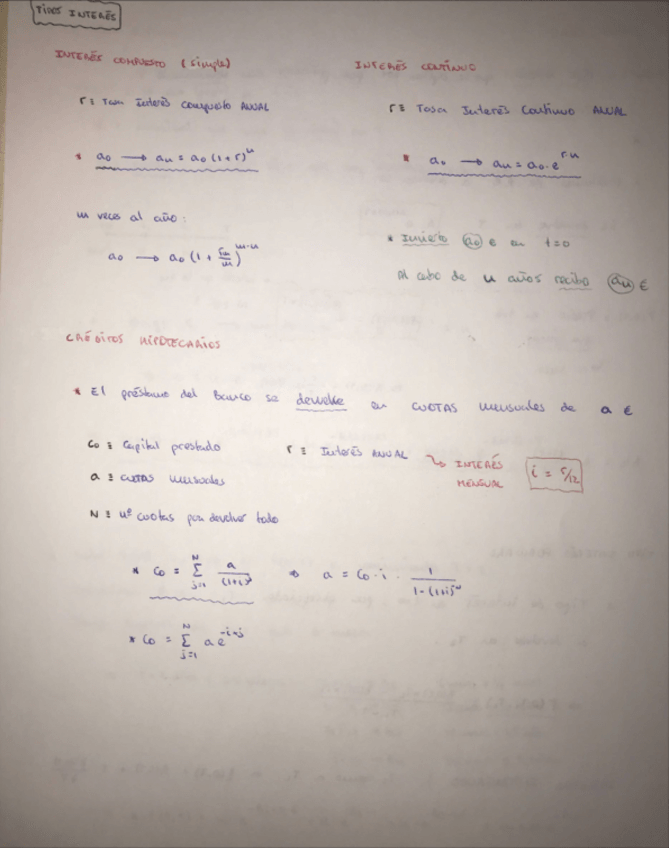 TIPOS INTERÉS
INTERÉS COMPUESTO (simple)
r ≡ Tasa Interés compuesto ANUAL
* a₀ → aₙ = a₀ (1+r)ⁿ
m veces al año:
a₀ → a₀ (1 + rₘ/m)^(m·n)
INTERÉS CONTINUO
r ≡ Tasa Interés Continuo ANUAL
* a₀ → aₙ = a₀·e^(r·n)
* Invierto a₀ € en t=0
Al cabo de n años recibo aₙ €
CRÉDITOS HIPOTECARIOS
* El préstamo del Banco se devuelve en CUOTAS mensuales de a €
C₀ ≡ Capital prestado
r ≡ Interés ANUAL → INTERÉS MENSUAL i = r/12
a ≡ cuotas mensuales
N ≡ nº cuotas para devolver todo
* C₀ = Σ_{j=1}^{N} a/(1+i)^j ⇒ a = C₀·i·
* C₀ = Σ_{j=1}^{N} a e^(-i·j)